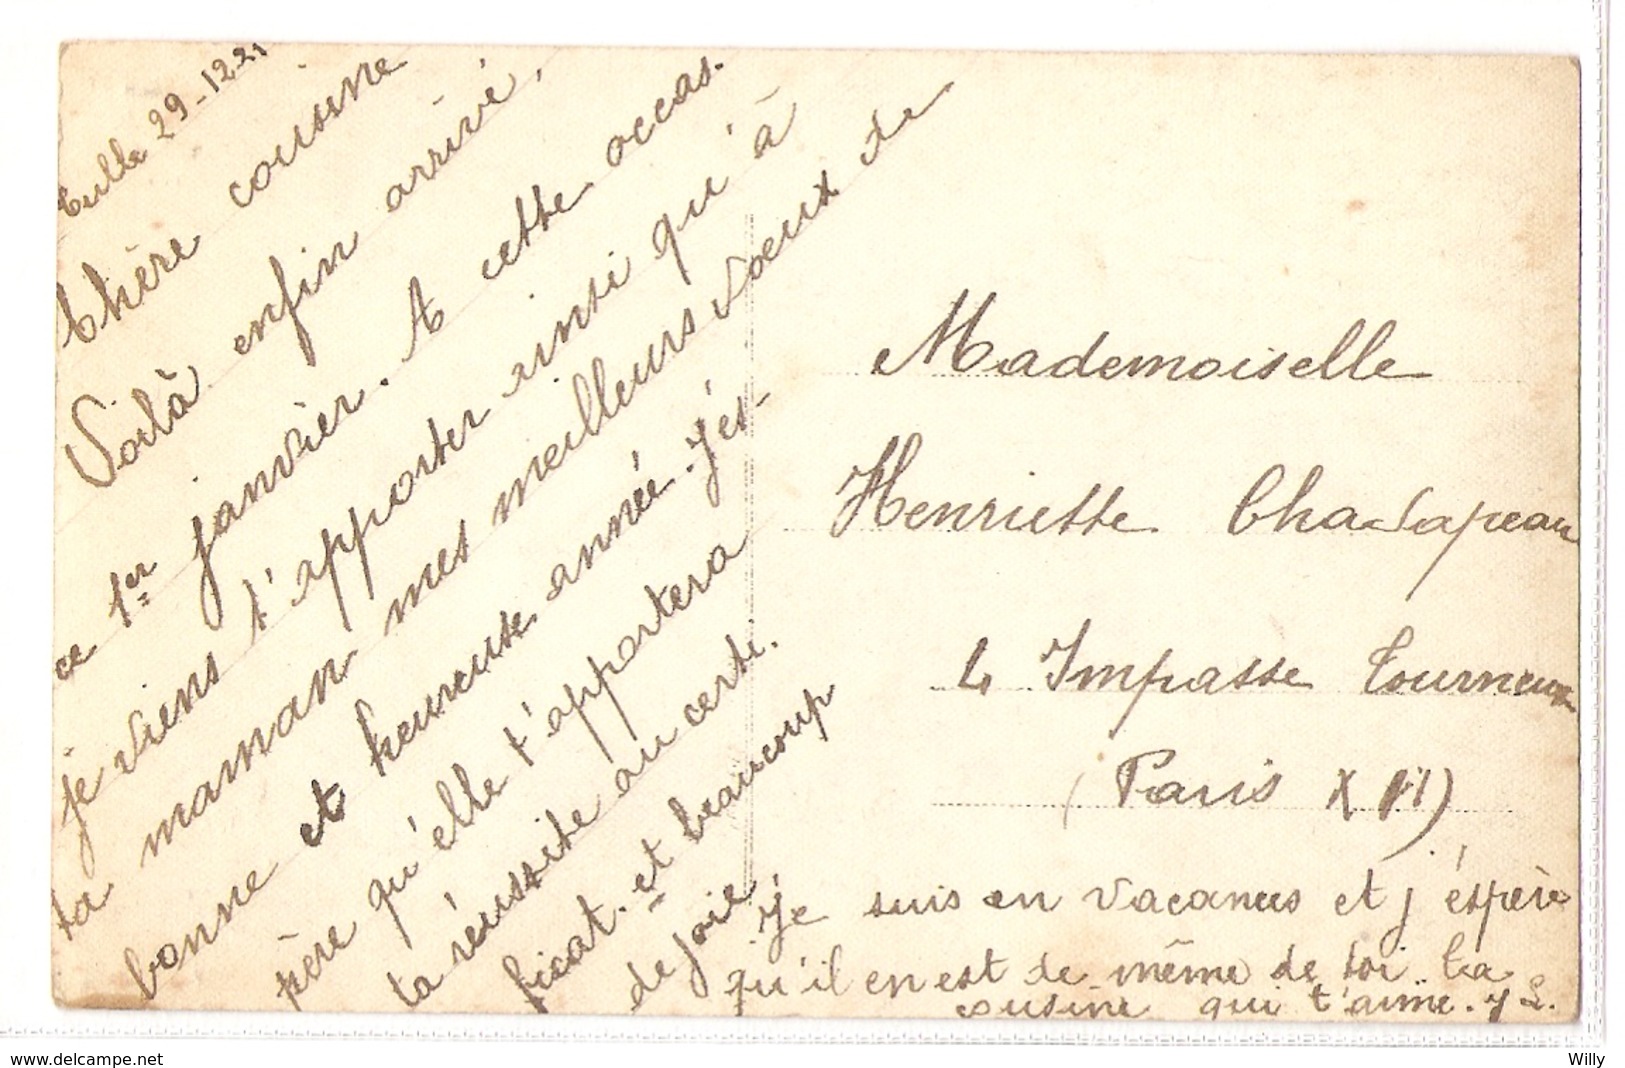 Tulle 29-12 21
Chère cousine
Voilà enfin arrivé,
ce 1er janvier. A cette occas-
je viens t'apporter ainsi qu'à
ta maman mes meilleurs voeux de
bonne et heureuse année. J'es-
père qu'elle t'apportera
ta réussite au certi-
ficat. et beaucoup
de joie.
Je suis en vacances et j'éspère
qu'il en est de même de toi. Ta
cousine qui t'aime. YL.
Mademoiselle
Henriette Chadapeau
4 Impasse Tourneux
(Paris XII)
www.delcampe.net
Willy